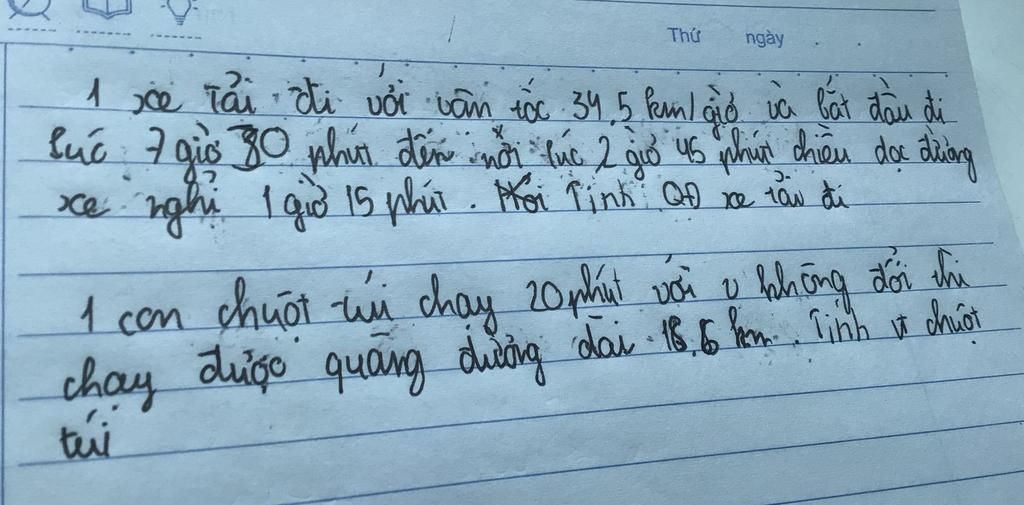 Thứ ngày
1 xe tải đi với vân tốc 34,5 km/giờ và bắt đầu đi
lúc 7 giờ 30 phút đến nơi lúc 2 giờ 45 phút chiều dọc đường
xe nghỉ 1 giờ 15 phút. Tính QĐ xe tải đi
1 con chuột túi chạy 20 phút với v không đổi thì
chạy được quãng đường dài km. Tính v chuột
túi